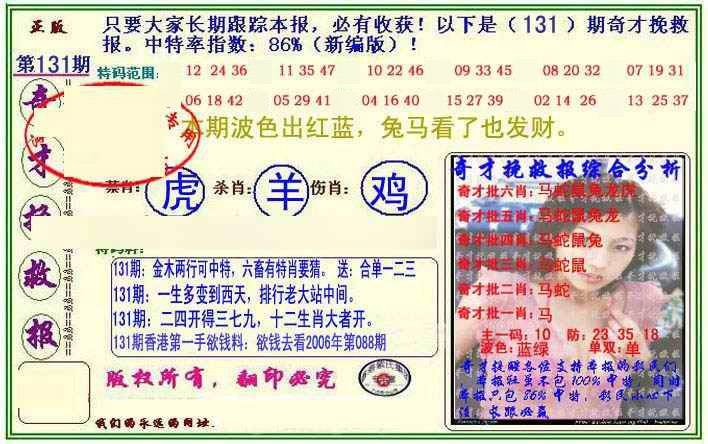 正版
只要大家长期跟踪本报，必有收获！以下是（131）期奇才挽救
报。中特率指数：86%（新编版）！
第131期
特码范围：
12 24 36 11 35 47 10 22 46 09 33 45 08 20 32 07 19 31
06 18 42 05 29 41 04 16 40 15 27 39 02 14 26 13 25 37
本期波色出红蓝，兔马看了也发财。
奇
才
挽
救
报
禁肖：虎 杀肖：羊 伤肖：鸡
131期：金木两行可中特，六畜有特肖要猜。 送：合单一二三
131期：一生多变到西天，排行老大站中间。
131期：二四开得三七九，十二生肖大者开。
131期香港第一手欲钱料：欲钱去看2006年第088期
版权所有，翻印必究
我们的永远的网址.
奇才挽救报综合分析
奇才批六肖：马蛇鼠兔龙虎
奇才批五肖：马蛇鼠兔龙
奇才批四肖：马蛇鼠兔
奇才批三肖：马蛇鼠
奇才批二肖：马蛇
奇才批一肖：马
主一码：10 防：23 35 18
波色：蓝绿 单双：单
奇才提醒各位支持本报的彩民们
本报社虽不包100%中特，同时
本报只包86%中特，彩民小心下
注，长跟必赢